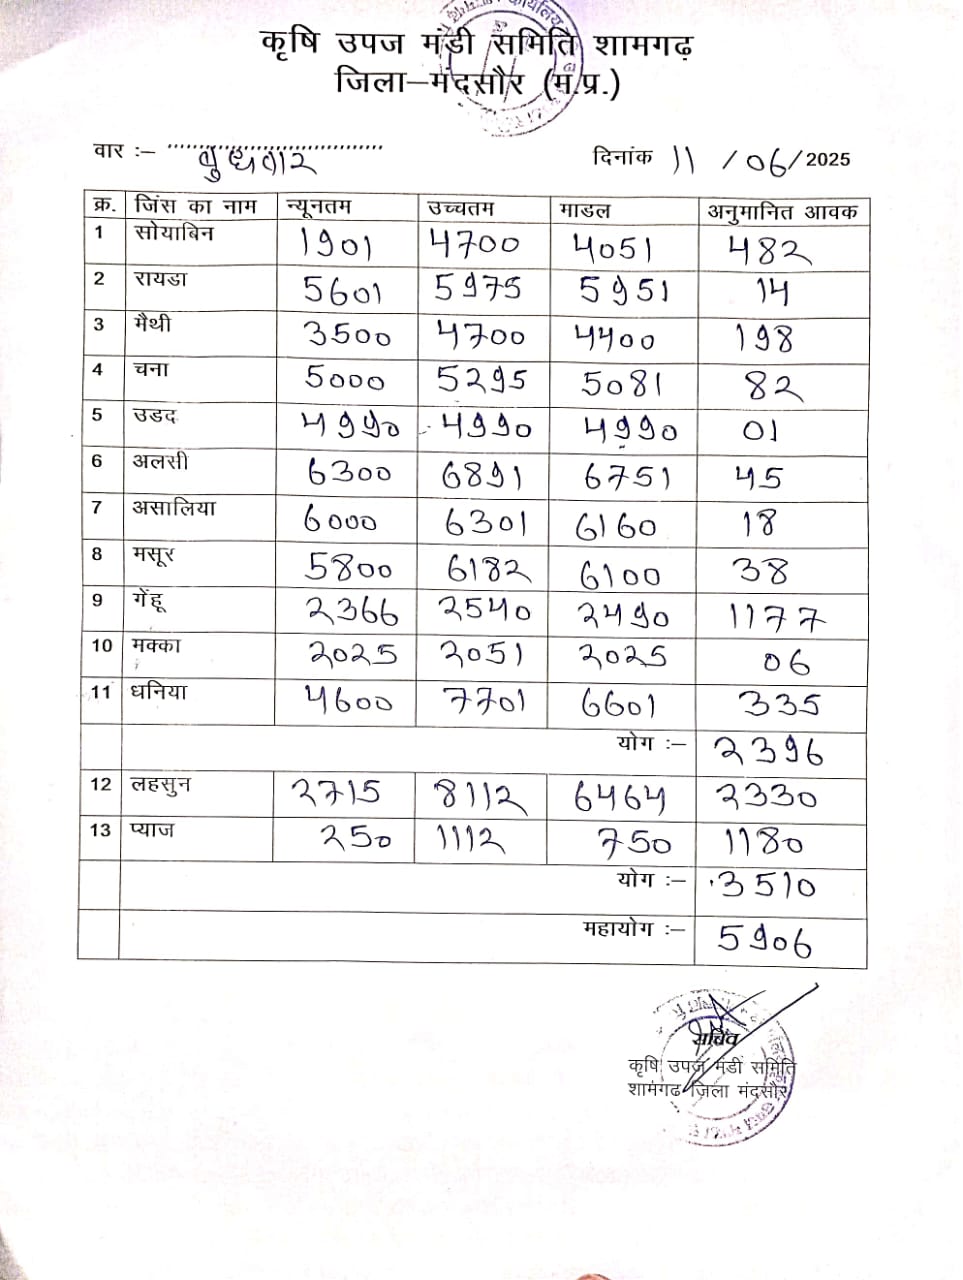 कृषि उपज मंडी समिति शामगढ़
जिला–मंदसौर (म.प्र.)
वार :– बुधवार दिनांक 11/06/2025
क्र. जिंस का नाम न्यूनतम उच्चतम माडल अनुमानित आवक
1 सोयाबिन 1901 4700 4051 482
2 रायडा 5601 5975 5951 14
3 मैथी 3500 4700 4400 198
4 चना 5000 5295 5081 82
5 उडद 4990 4990 4990 01
6 अलसी 6300 6891 6751 45
7 असालिया 6000 6301 6160 18
8 मसूर 5800 6182 6100 38
9 गेंहू 2366 2540 2490 1177
10 मक्का 2025 2051 2025 06
11 धनिया 4600 7701 6601 335
योग :– 2396
12 लहसुन 2715 8112 6464 2330
13 प्याज 250 1112 750 1180
योग :– 3510
महायोग :– 5906
सचिव
कृषि उपज मंडी समिति
शामगढ जिला मंदसौर